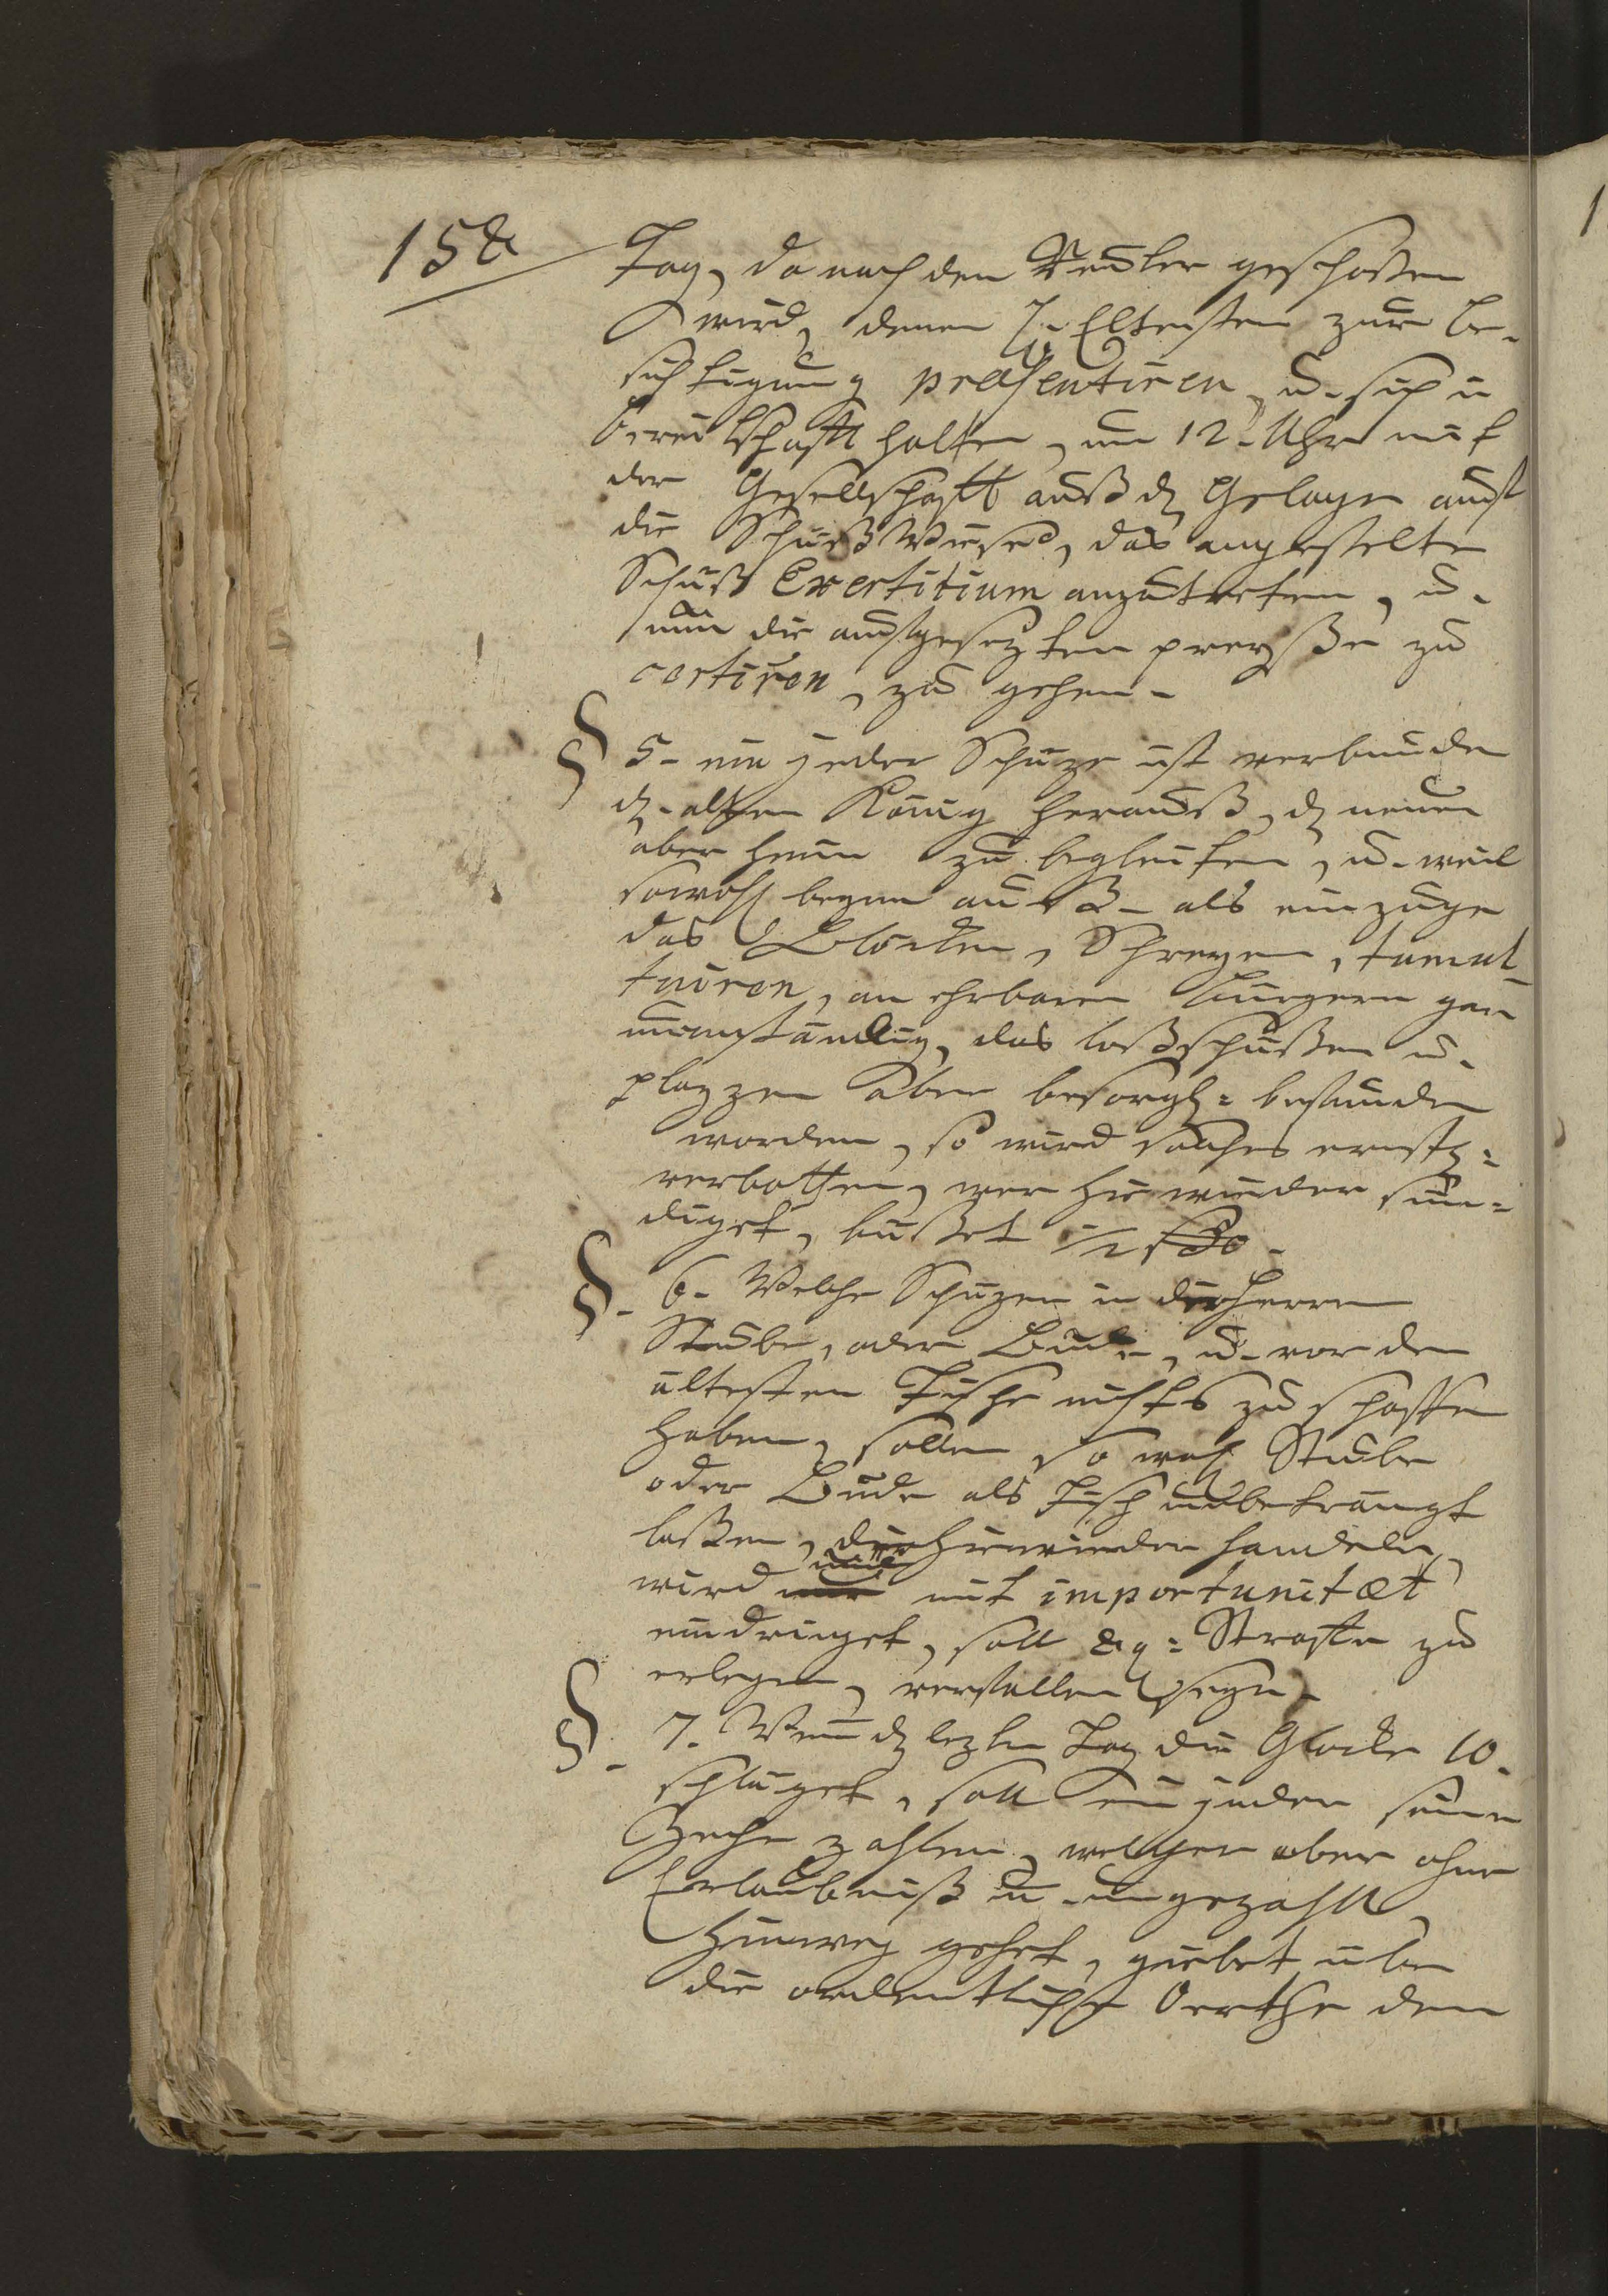 158
Tag, da nach den Neuler geschoßen
wird, denen H. Eltersten zur be-
sichtigung præsentiren, u. sich in
bereitschafft halten, um 12. Uhr mit
der Gesellschafft auß dz Gelager auf
die Schieß Wiese, das angestelte
Schieß Exercitium anzutretten, u.
um die aufgesezten preyße zu
certiren, zu gehen.
§ 5. ein jeder Schüze ist verbunden
dz. alten König herauß, dz neuen
aber heim zu begleiten, u. weil
sowohl beym auß- als einzuge
das Blöcken, Schreyen, tumul
tuiren, an ehrbaren bürgern gar
unanständig, das loßschüßen u.
plazzen aber besorgl= befunden
worden, so wird solches ernstl=
verbotten, wer hierwieder sün=
diget, büßet 1/2
§. 6. Welche Schüzen in der Herren
Stube, oder Bude, u. vor den
ältesten Tische nichts zu schaffen
haben, sollen so wohl Stube
oder Bude als Tisch unbetrangt
laßen, der hierwieder handeln
wird und mit importunitæt
eindringet, soll 8 g= Straffe zu
erlegen, verfallen seyn.
§. 7. Wenn dz lezten Tag die Glocke 10.
schläget, soll ein jeder seine
Zeche zahlen, welcher aber ohne
Erlaubniß u. ungezahlt
hinweg gehet, giebet über
die ordentliche Oerthe dem